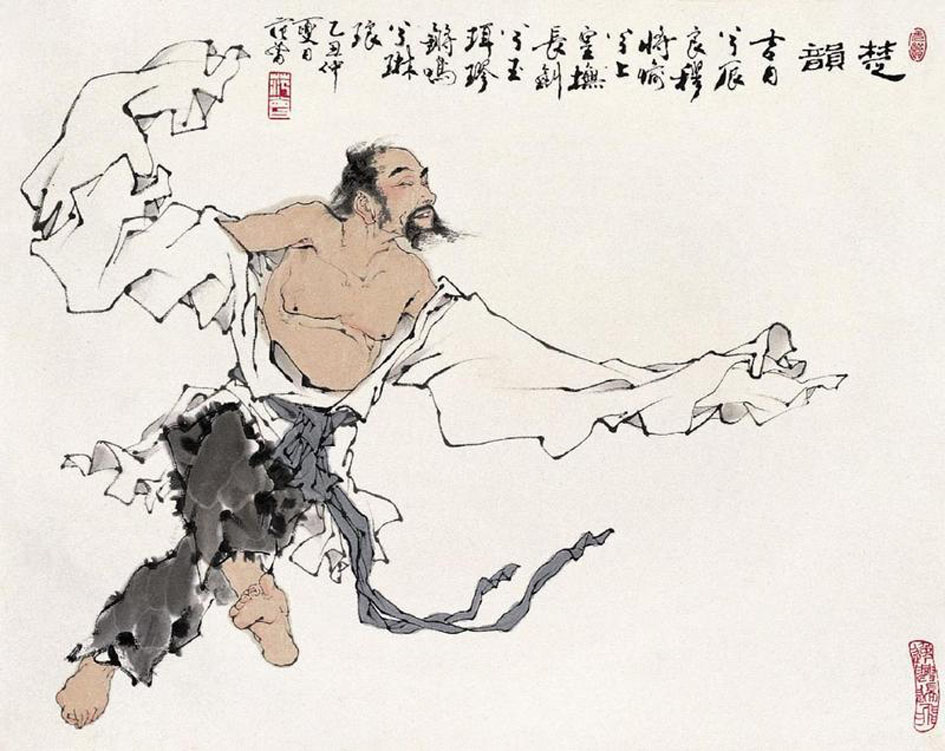 楚韻
吉日
兮辰
良穆
将愉
兮上
皇撫
長劍
兮玉
珥璆
鏘鳴
兮琳
琅
乙丑仲
夏日
范曾